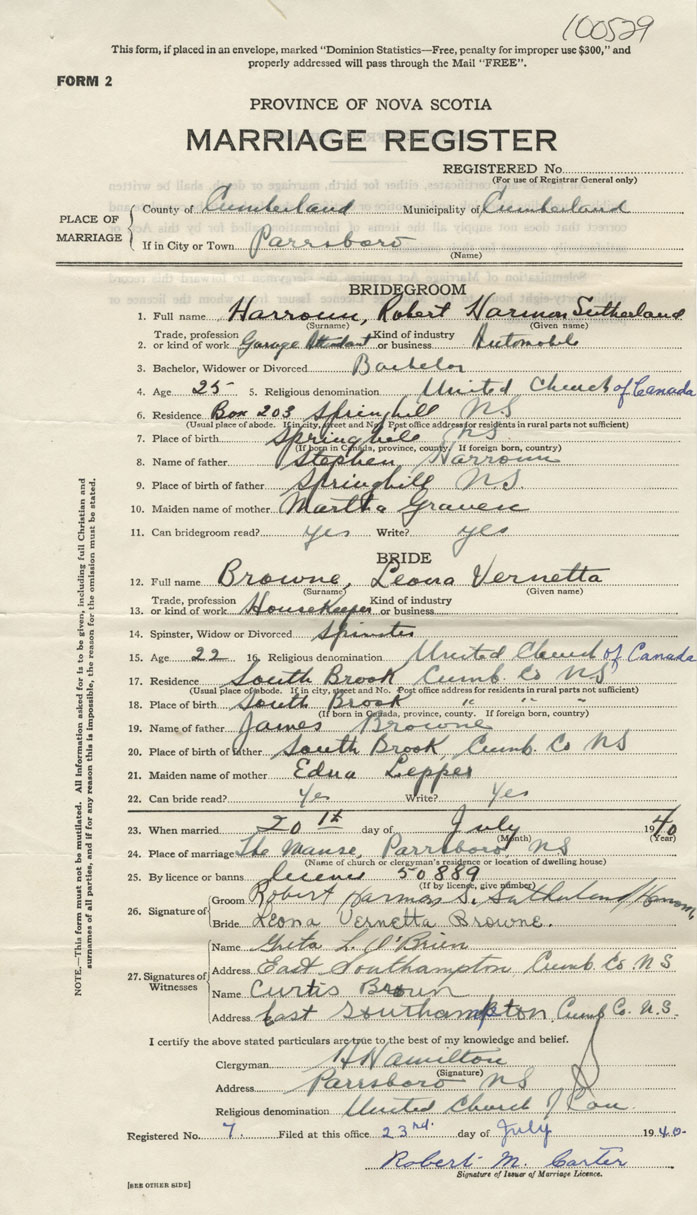 100529
This form, if placed in an envelope, marked "Dominion Statistics—Free, penalty for improper use $300," and
properly addressed will pass through the Mail "FREE".
FORM 2
PROVINCE OF NOVA SCOTIA
MARRIAGE REGISTER
REGISTERED No.
(For use of Registrar General only)
PLACE OF MARRIAGE
County of Cumberland Municipality of Cumberland
If in City or Town Parrsboro
(Name)
BRIDEGROOM
1. Full name Harroun, Robert Harmon Sutherland
(Surname) (Given name)
2. Trade, profession or kind of work Garage Attendant Kind of industry or business Automobile
3. Bachelor, Widower or Divorced Bachelor
4. Age 25 5. Religious denomination United Church of Canada
6. Residence Box 203 Springhill NS
(Usual place of abode. If in city, street and No. Post office address for residents in rural parts not sufficient)
7. Place of birth Springhill NS.
(If born in Canada, province, county. If foreign born, country)
8. Name of father Stephen Harroun
9. Place of birth of father Springhill NS.
10. Maiden name of mother Martha Graven
11. Can bridegroom read? yes Write? yes
BRIDE
12. Full name Browne, Leona Vernetta
(Surname) (Given name)
13. Trade, profession or kind of work Housekeeper Kind of industry or business
14. Spinster, Widow or Divorced Spinster
15. Age 22 16. Religious denomination United Church of Canada
17. Residence South Brook Cumb. Co NS
(Usual place of abode. If in city, street and No. Post office address for residents in rural parts not sufficient)
18. Place of birth South Brook " " "
(If born in Canada, province, county. If foreign born, country)
19. Name of father James Browne
20. Place of birth of father South Brook, Cumb. Co NS
21. Maiden name of mother Edna Lepper
22. Can bride read? Yes Write? Yes
23. When married 20 day of July 1940
(Month) (Year)
24. Place of marriage The Manse, Parrsboro, NS
(Name of church or clergyman's residence or location of dwelling house)
25. By licence or banns licence 50889
(If by license, give number)
26. Signature of
Groom Robert Harmon S. Sutherland Harroun
Bride Leona Vernetta Browne.
27. Signatures of Witnesses
Name Greta L. O'Brien
Address East Southampton Cumb. Co. N S
Name Curtis Brown
Address East Southampton, Cumb Co. N.S.
I certify the above stated particulars are true to the best of my knowledge and belief.
Clergyman Hamilton
(Signature)
Address Parrsboro NS
Religious denomination United Church of Can.
Registered No. 7. Filed at this office 23rd. day of July 1940
Robert M. Carter
Signature of Issuer of Marriage Licence.
[SEE OTHER SIDE]
NOTE.—This form must not be mutilated. All information asked for is to be given, including full Christian and
surnames of all parties, and if for any reason this is impossible, the reason for the omission must be stated.